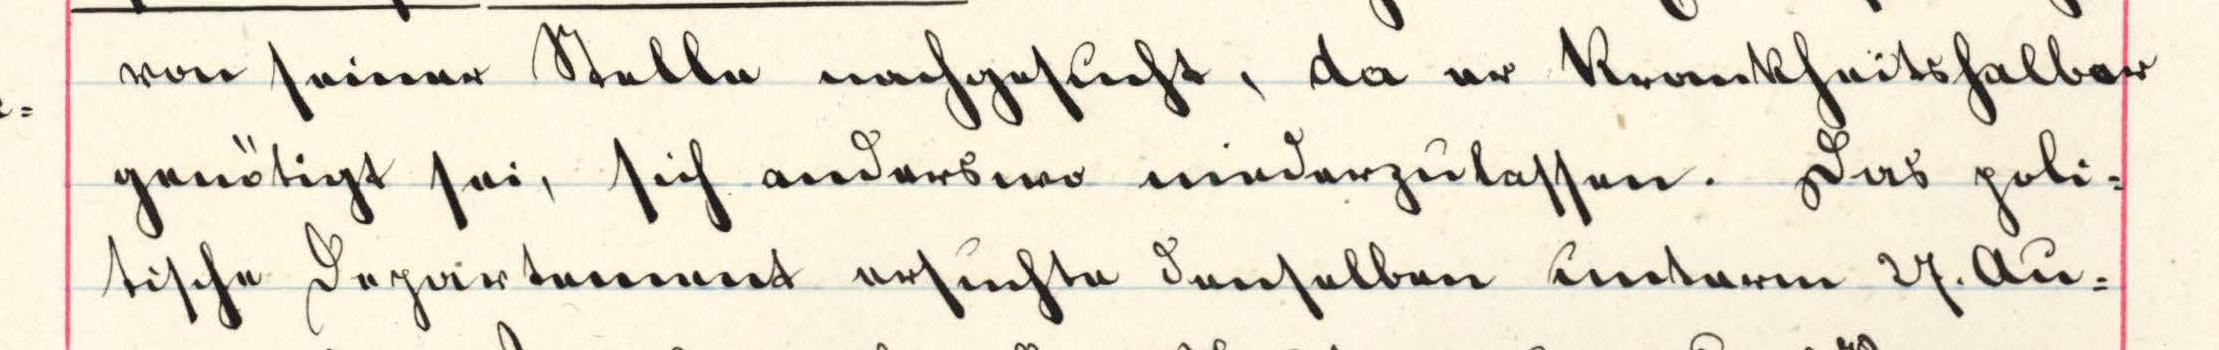 von seiner Stelle nachgesucht, da er Krankheitshalber
genötigt sei, sich anderswo niederzulassen. Das poli-
tische Departement ersuchte denselben unterm 27. Au-